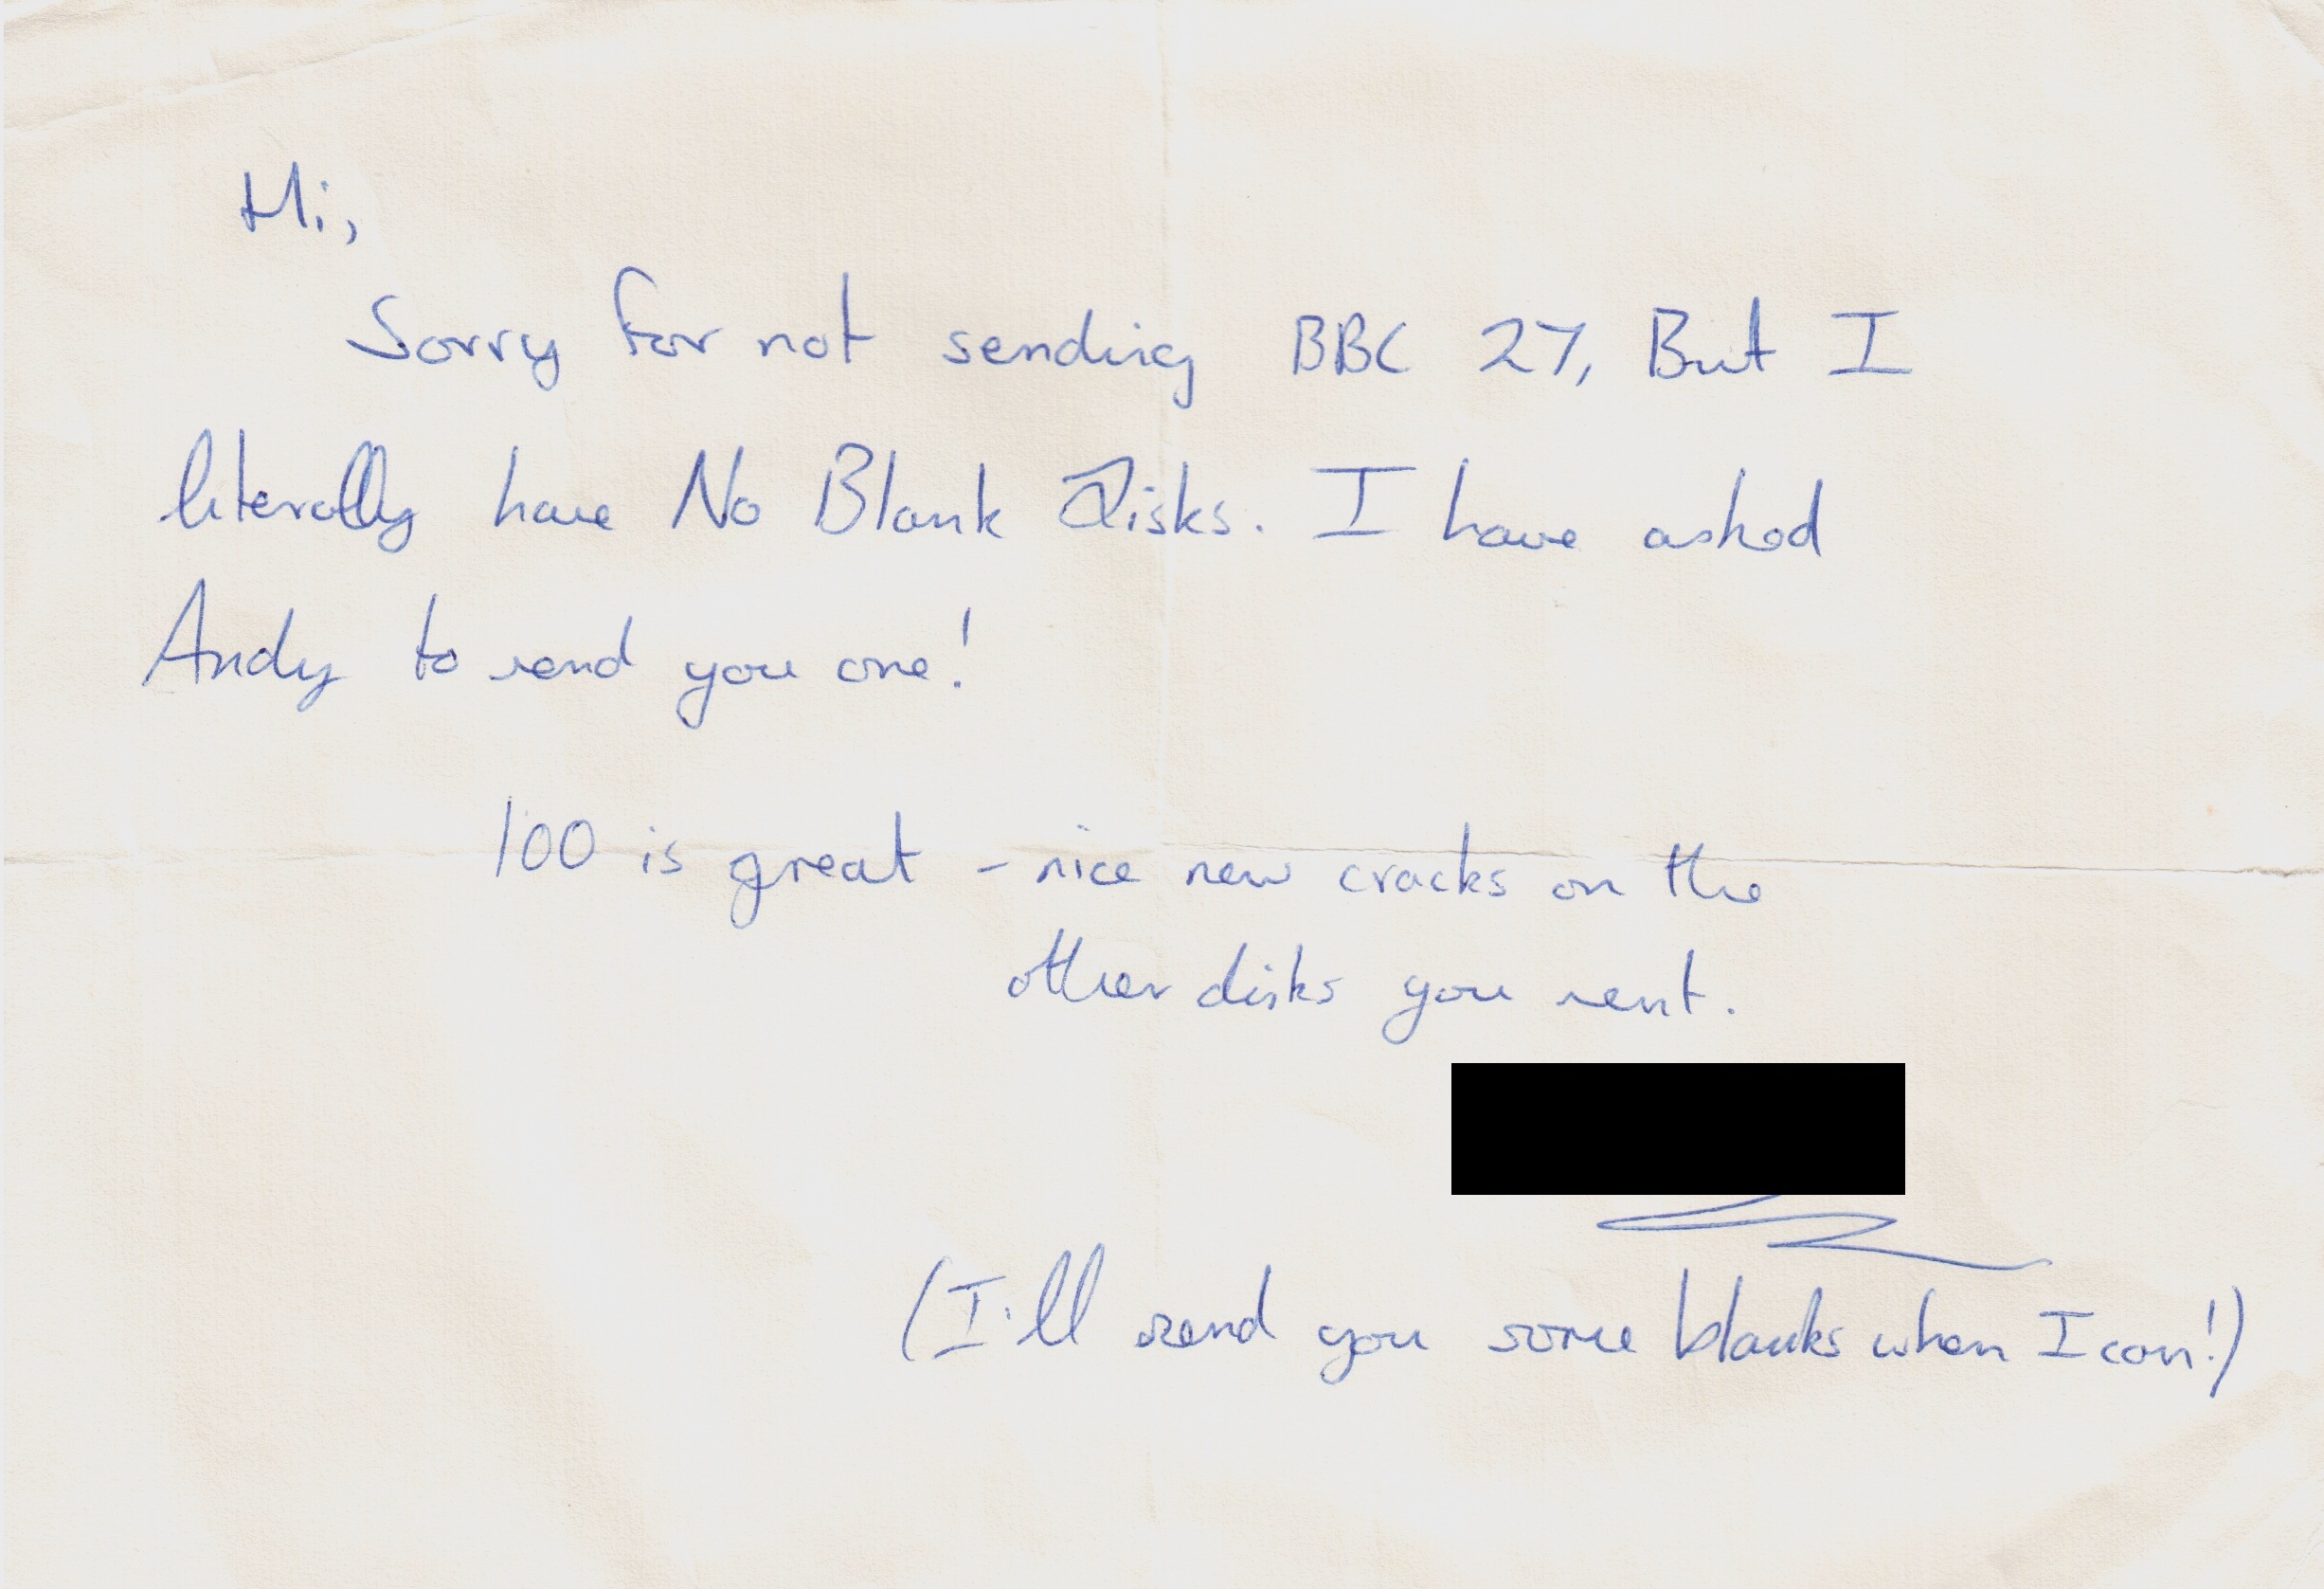 Hi,
Sorry for not sending BBC 27, But I
literally have No Blank Disks. I have asked
Andy to send you one!
100 is great - nice new cracks on the
other disks you sent.
(I'll send you some blanks when I can!)